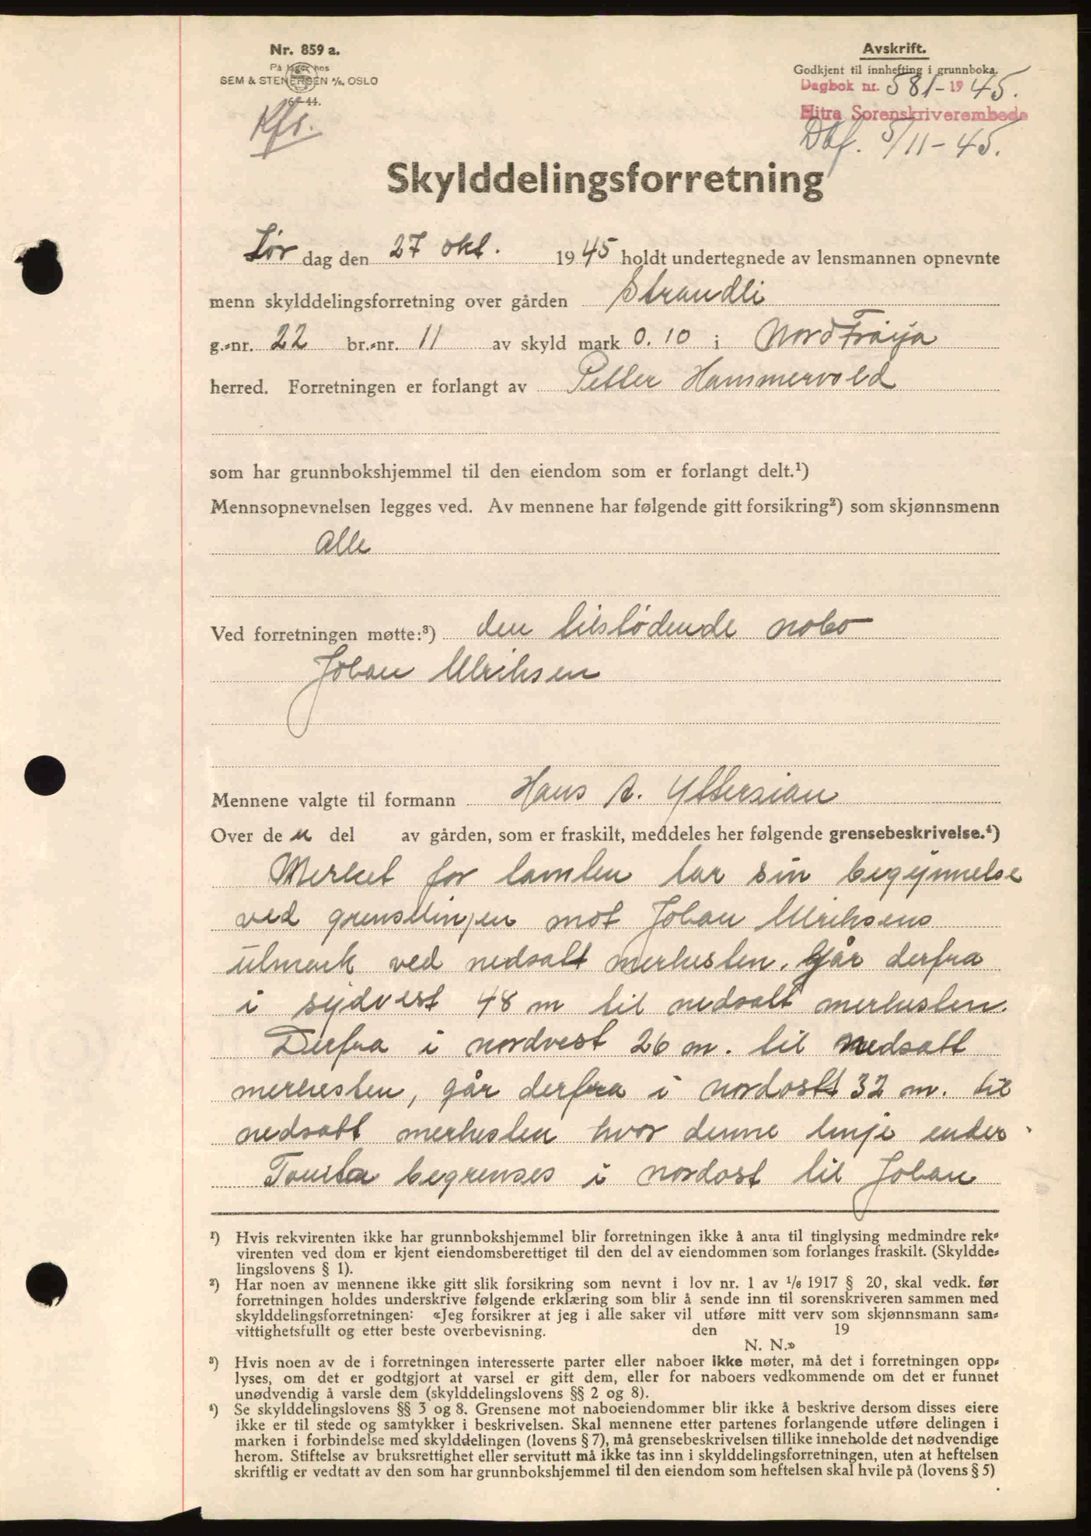 Nr. 859 a.
På lager hos
SEM & STENERSEN A/S, OSLO
6-44.
Kfr.
Avskrift.
Godkjent til innhefting i grunnboka.
Dagbok nr. 581-1945.
Hitra Sorenskriverembede
Dbf. 5/11-45.
Skylddelingsforretning
Lør dag den 27 okt. 1945 holdt undertegnede av lensmannen opnevnte
menn skylddelingsforretning over gården Strandli
g.-nr. 22 br.-nr. 11 av skyld mark 0.10 i Nord Frøya
herred. Forretningen er forlangt av Petter Hammervold
som har grunnbokshjemmel til den eiendom som er forlangt delt.¹)
Mennsopnevnelsen legges ved. Av mennene har følgende gitt forsikring²) som skjønnsmenn
Alle
Ved forretningen møtte:³) den tilstødende nabo
Johan Ulriksen
Mennene valgte til formann Hans A. Yttersian
Over de n del av gården, som er fraskilt, meddeles her følgende grensebeskrivelse.⁴)
Merket for tomten tar sin begynnelse
ved grenselinjen mot Johan Ulriksens
utmark ved nedsatt merkesten. Går derfra
i sydvest 48 m til nedsatt merkesten.
Derfra i nordvest 26 m. til nedsatt
merkesten, går derfra i nordost 32 m. til
nedsatt merkesten hvor denne linje ender.
Tomta begrenses i nordost til Johan
¹) Hvis rekvirenten ikke har grunnbokshjemmel blir forretningen ikke å anta til tinglysing medmindre rek-
virenten ved dom er kjent eiendomsberettiget til den del av eiendommen som forlanges fraskilt. (Skyldde-
lingslovens § 1).
²) Har noen av mennene ikke gitt slik forsikring som nevnt i lov nr. 1 av 1/6 1917 § 20, skal vedk. før
forretningen holdes underskrive følgende erklæring som blir å sende inn til sorenskriveren sammen med
skylddelingsforretningen: «Jeg forsikrer at jeg i alle saker vil utføre mitt verv som skjønnsmann sam-
vittighetsfullt og etter beste overbevisning. den 19
N. N.»
³) Hvis noen av de i forretningen interesserte parter eller naboer ikke møter, må det i forretningen opp-
lyses, om det er godtgjort at varsel er gitt dem, eller for naboers vedkommende om det er funnet
unødvendig å varsle dem (skylddelingslovens §§ 2 og 8).
⁴) Se skylddelingslovens §§ 3 og 8. Grensene mot naboeiendommer blir ikke å beskrive dersom disses eiere
ikke er til stede og samtykker i beskrivelsen. Skal mennene etter partenes forlangende utføre delingen i
marken i forbindelse med skylddelingen (lovens § 7), må grensebeskrivelsen tillike inneholde det nødvendige
herom. Stiftelse av bruksrettighet eller servitutt må ikke tas inn i skylddelingsforretningen, uten at heftelsen
skriftlig er vedtatt av den som har grunnbokshjemmel til den eiendom som heftelsen skal hvile på (lovens § 5)